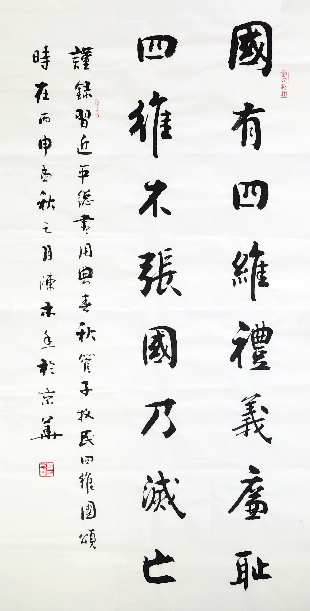 國有四維禮義廉耻
四維不張國乃滅亡
謹錄習近平總書用典春秋管子牧民四維國頌
時在丙申
秋之月陳木
於京華